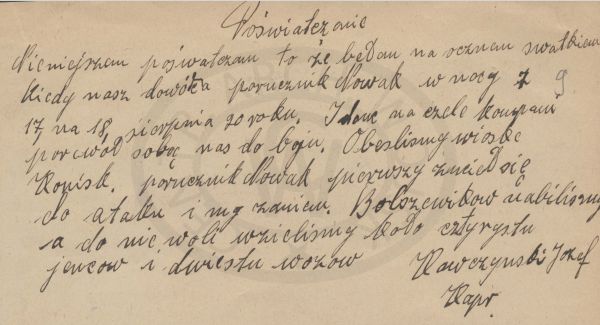 Poświatczenie
Nieniejszem poświatczam to że będonc na ocznem swatkiem
kiedy nasz dowótca porucznik Nowak w nocy z 9
17 na 18 sierpnia 20 roku. Idonc na czele kompani
porciwół sobą nas do boju. Obeslismy wioskę
Konisk. porucznik Nowak pierwszy zucieł się
do ataku i my zaniem. Bolszewikow nabilismy
a do niewoli wzielismy koło cztyrystu
jencow i dwiestu wozow Kawczynski Jozef
Kapr.